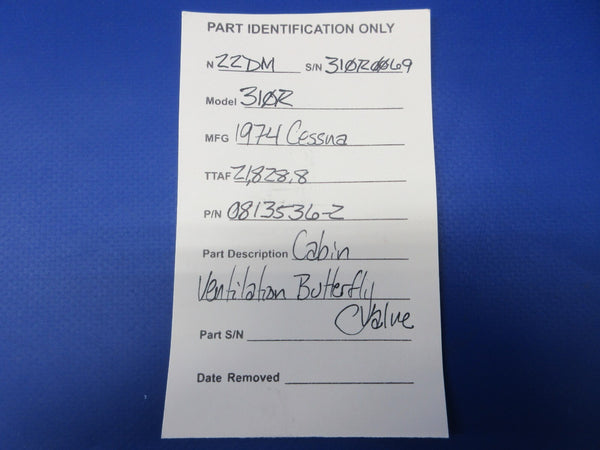 PART IDENTIFICATION ONLY
N 22DM S/N 310R0069
Model 310R
MFG 1974 Cessna
TTAF 21,828.8
P/N 0813536-2
Part Description Cabin
Ventilation Butterfly
Valve
Part S/N
Date Removed